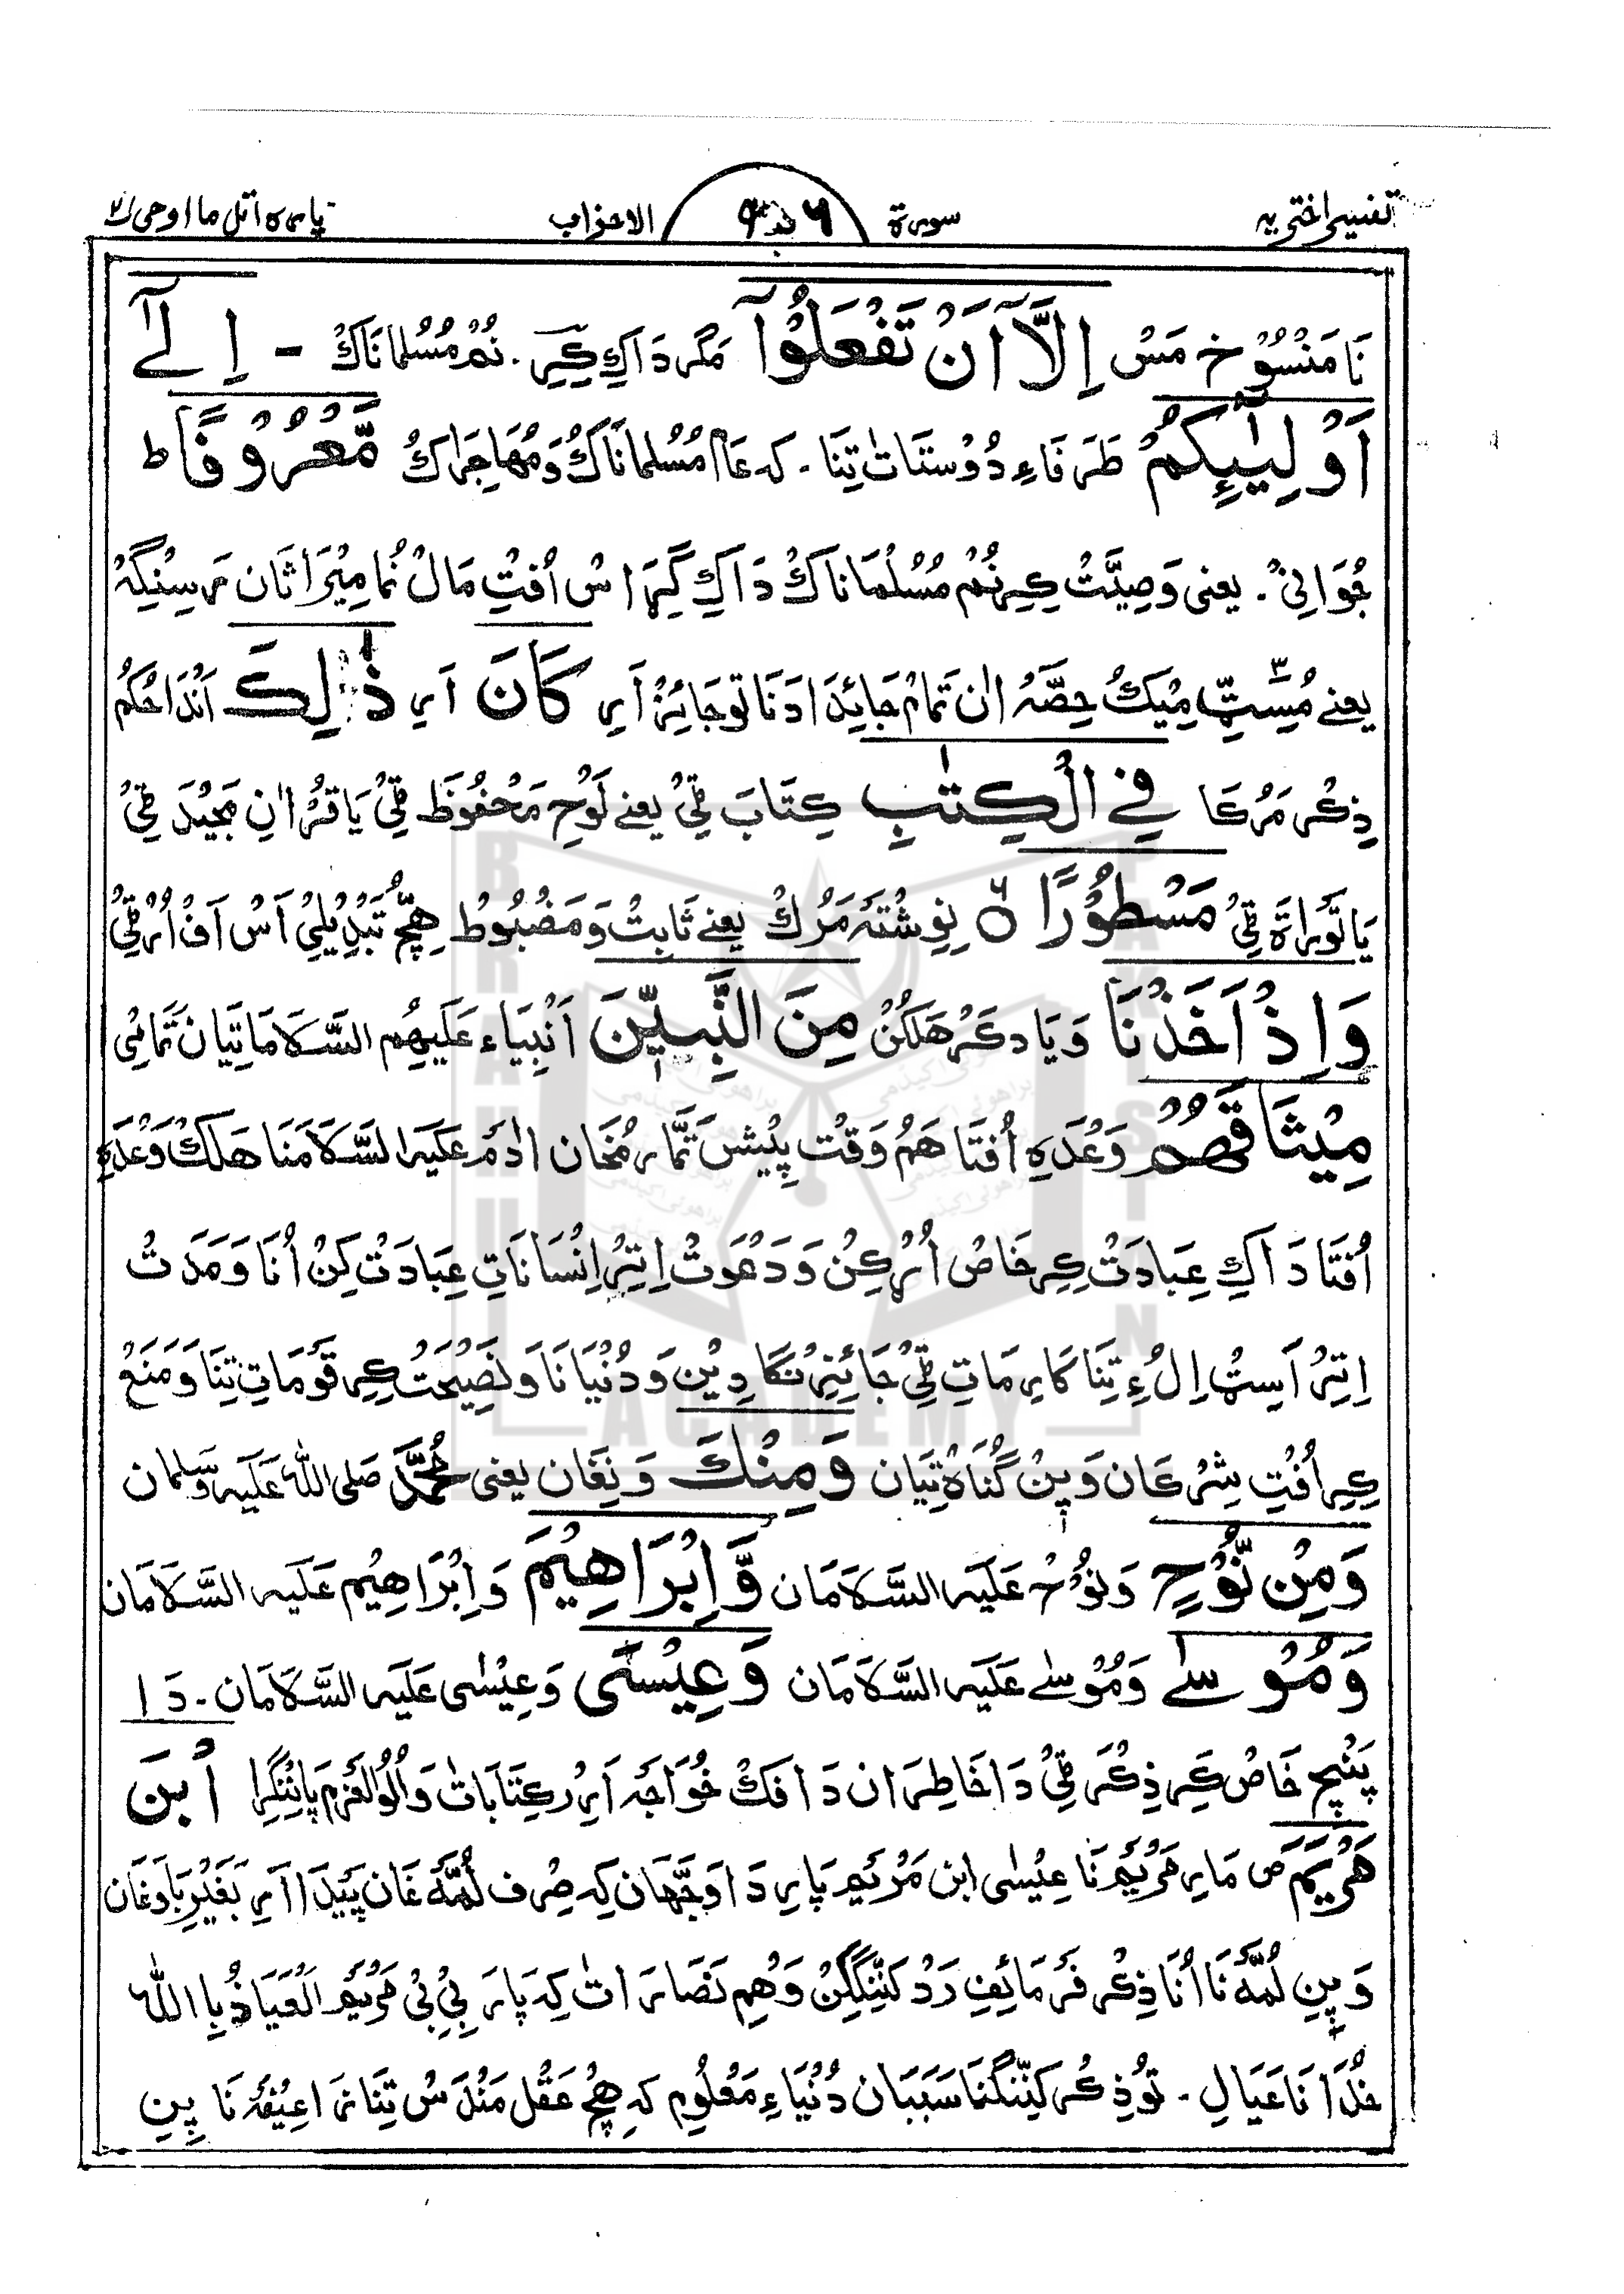 تفسیر اختریہ سورة ٩ ٦ الاحزاب پارہ اتل ما اوحی ٢١
نَا مَنْسُوْخ مَسْ اِلَّآ اَنْ تَفْعَلُوْٓا مَگر دَاکِ کِرِ. نُمْ مُسُلمانَاکْ - اِلٰٓے
اَوْلِیٰٓئِکُمْ طَرَفَاءِ دُوْستَاتْ تِنَا۔ کہ عَام مُسُلمانَاکْ وَمُهَاجِرَاکْ مَّعْرُوْفًا ط
جُوَانِیْ۔ یعنی وَصِیَّتْ کِرِ نُمْ مُسُلْمَانَاکْ دَاکِ گِرَاسْ اُفتِ مَالْ نُمَا مِیْرَاثَان رَسِنِگِہْ
یعنے مُسِٹِّمِیْکْ حِصَّہْ ان تَمَامْ جَائِدَادَنَا تو جَائِزْ اَرِ کَانَ اَرِ ذٰلِکَ اَنْدَا حُکُمْ
ذِکْر مَرْکَا فِی الْکِتٰبِ کِتَابَ ٹِیْ یعنے لَوْحِ مَحْفُوْظَ ٹِیْ یَا قُرْاٰنِ مَجِیْدَ ٹِیْ
یَا تَوْرَاۃَ ٹِیْ مَسْطُوْرًا ٥ ٦ نِوِشْتَہ مَرْکْ یعنے ثَابِتْ وَمَضْبُوْطْ هِچّ تَبْدِیْلِیْ اَسْ اَفْ اُرْٹِیْ
وَاِذْ اَخَذْنَا وَیَاد کَرْ هَلَکُنْ مِنَ النَّبِیّٖنَ اَنْبِیَاء عَلَیْهِم السَّلَامَاتِیَان تَمَامِی
مِیْثَاقَهُمْ وَعْدَہِ اُفتَا هَمْ وَقْت پِیْش تَمَّار مُخَان اٰدَمْ عَلَیْہ السَّلَامَنَا هَلَکْ وَعْدَہِ
اُفْتَا دَاکِ عِبَادَتْ کِرِ خَاصْ اُرْکِنْ وَدَعْوَتْ اِتِرْ اِنْسَانَاتِ عِبَادَتْ کَنْ اُنَا وَمَدَتْ
اِتِرْ اَسِٹْ اِلْءِ تِنَا کَارِمَاتِ ٹِیْ جَائِزِنْگَا دِیْن وَدُنْیَانَا وَنَصِیْحَتْ کِرِ قَوْمَاتِ تِنَا وَمَنَعْ
کِرِ اُفْتِ شِرْکَان وَپِنْ گُنَاہْ تِیَان وَمِنْکَ وَنِعَان یعنی مُحَمَّدْ صَلی اللہ عَلَیْہ وَسَّلمان
وَمِنْ نُّوْحٍ وَنُوْحْ عَلَیْہ السَّلَامَان وَّاِبْرَاهِیْمَ وَاِبْرَاهِیْم عَلَیْہ السَّلَامَان
وَمُوْسٰے وَمُوْسٰے عَلَیْہ السَّلَامَان وَعِیْسٰی وَعِیْسٰی عَلَیْہ السَّلَامَان۔ دَا
پَنْچ خَاصْ کَرِ ذِکْرَ ٹِیْ دَا خَاطِرَان دَافَکْ خُوَاجَہ اَرِر کِتَابَاتْ وَاُلُوالْعَزْم پَانِنْگِرَا ابْنَ
مَرْیَمَ ص مَارِ مَرْیَمْ نَا عِیْسٰی ابن مَرْیَم پَارِ دَا وَجَّهَان کِہ صِرْف لُمَّہ غَان پَیْدَا اَرِ بَغَیْرِ بَاوَغَان
وَپِنِ لُمَّہ نَا اُنَا ذِکْر فَرْمَائِفِ رَدْ کَنِنْگِنْ وَهِم نَصَارَاتْ کِہ پَارَ بِیْ بِیْ مَرْیَم اَلْعَیَاذُ بِا اللہ
خُدَا نَا عَیَالِ۔ تَوْ ذِکْر کَنِنْگنَا سَبَبَان دُنْیَاءِ مَعْلُوْم کہ هِچْ عَقْل مَنْدَسْ تِنَا نَرَا عِیْفَہ نَا پِنِ